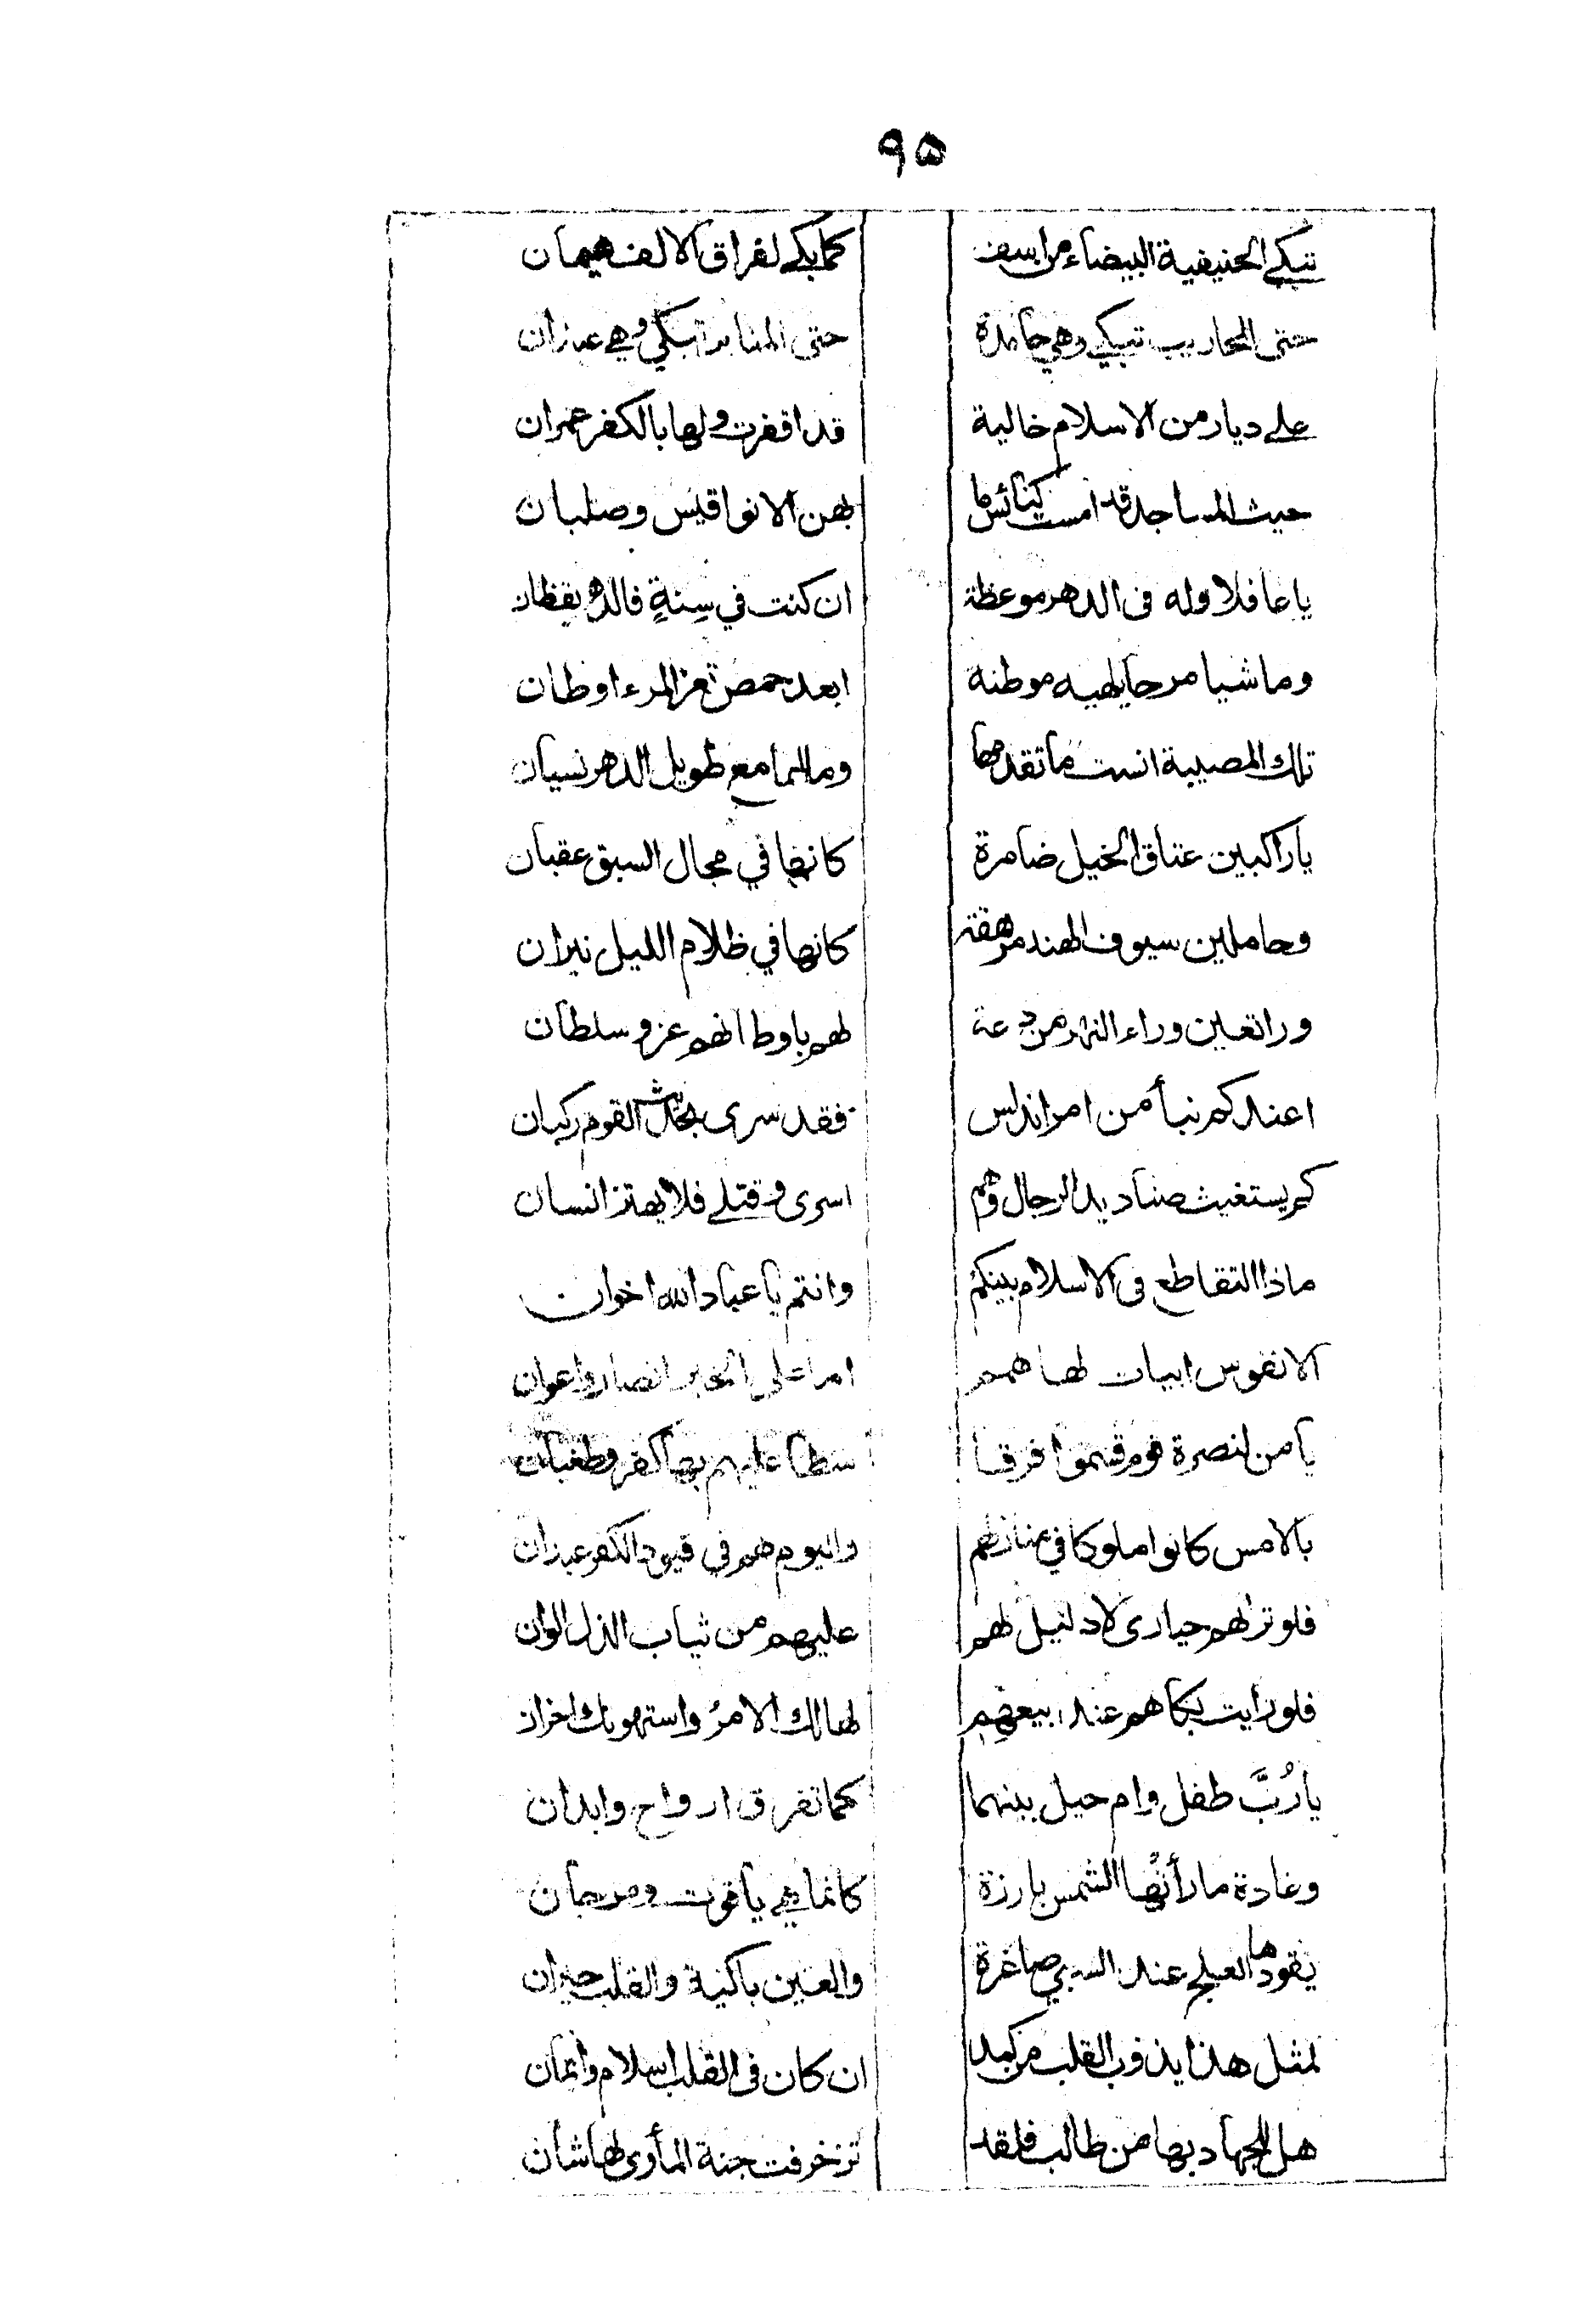 ٩٥
تبكي الحنيفية البيضاء من اسف كما بكى لفراق الالف هيمان
حتى المحاريب تبكي وهي جامدة حتى المنابر تبكي وهي عيدان
على ديار من الاسلام خالية قد اقفرت ولها بالكفر عمران
حيث المساجد قد امست كنائس ما بهن الا نواقيس وصلبان
يا غافلا وله فى الدهر موعظة ان كنت في سِنةٍ فالدهر يقظان
وماشيا مرحا يلهيه موطنه ابعد حمص تعز المرء اوطان
تلك المصيبة انست ما تقدمها وما لها مع طويل الدهر نسيان
يا راكبين عتاق الخيل ضامرة كانها في مجال السبق عقبان
وحاملين سيوف الهند مرهفة كانها في ظلام الليل نيران
وراتعين وراء النهر من دعة لهم باوطانهم عز وسلطان
اعندكم نبأ من امر اندلس فقد سرى بحديث القوم ركبان
كم يستغيث صناديد الرجال وهم اسرى وقتلى فلا يهتز انسان
ماذا التقاطع فى الاسلام بينكم وانتم يا عباد الله اخوان
الا نفوس ابيات لها همم اما على الخير انصار واعوان
يا من لنصرة قوم قسموا فرقا سطا عليهم بها كفر وطغيان
بالامس كانوا ملوكا في منازلهم واليوم هم في قيود الكفر عبدان
فلو تراهم حيارى لا دليل لهم عليهم من ثياب الذل الوان
فلو رايت بكاهم عند بيعهم لهالك الامرُ واستهوتك احزان
يا رُبَّ طفل وام حيل بينهما كما تفرق ارواح وابدان
وغادة ما رأتها الشمس بارزة كانما هي ياقوت ومرجان
يقودها العلج عند السبي صاغرة والعين باكية والقلب حيران
لمثل هذا يذوب القلب من كمد ان كان فى القلب اسلام وايمان
هل للجهاد بها من طالب فلقد تزخرفت جنة المأوى لها شان